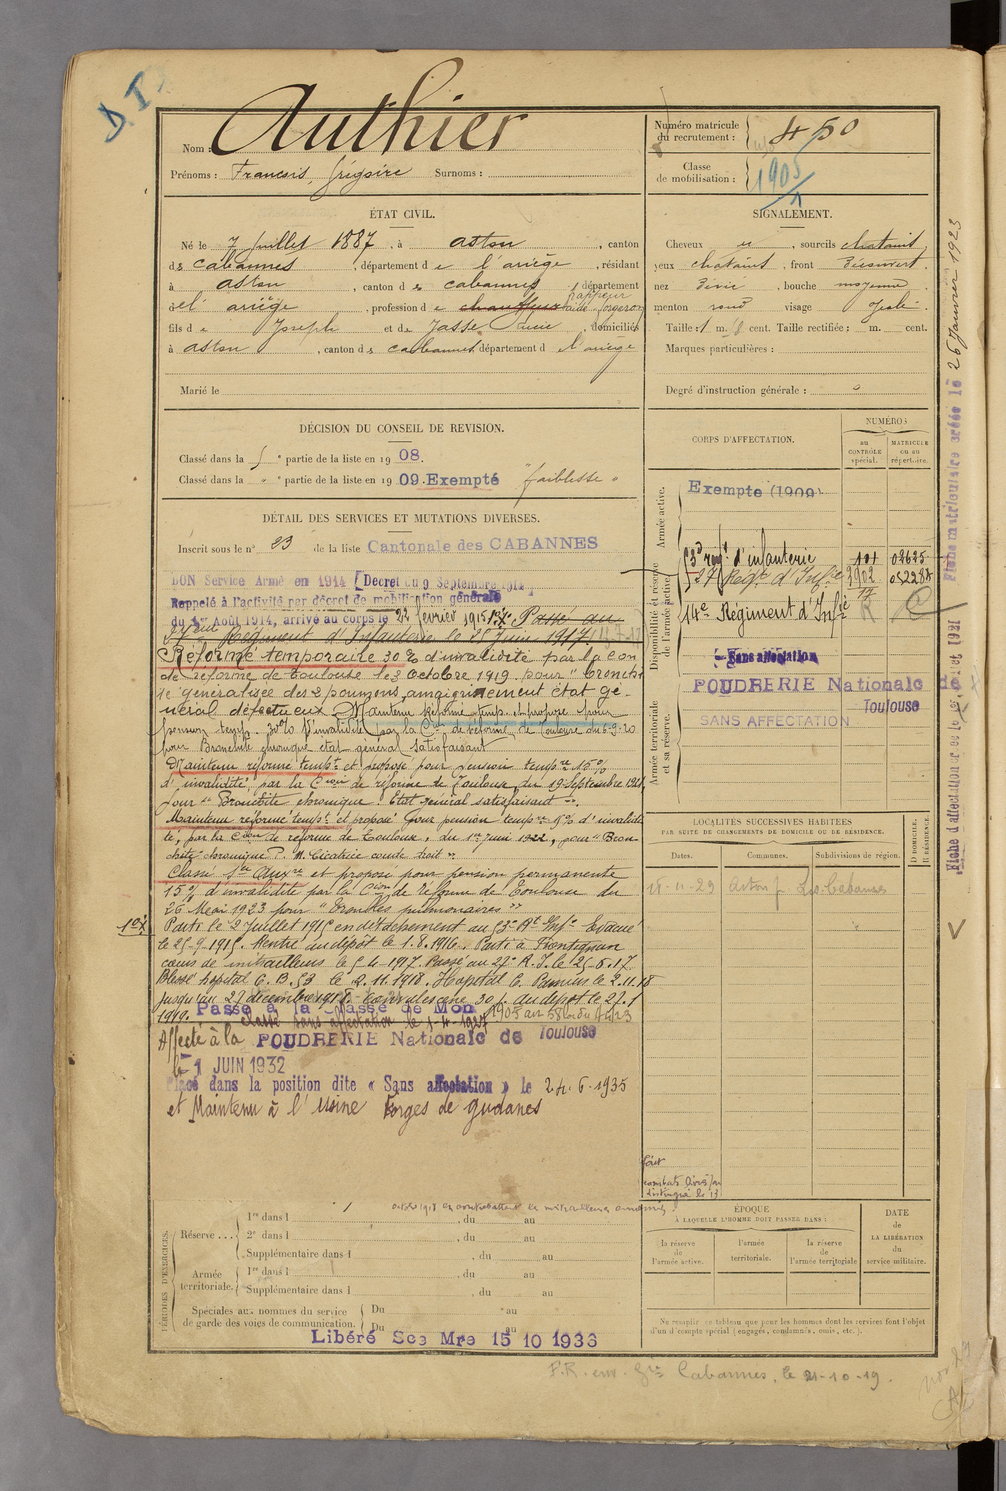 D.I.
Nom : Authier
Prénoms : François, Grégoire Surnoms :
Numéro matricule
du recrutement : 450
Classe
de mobilisation : 1905
ÉTAT CIVIL.
Né le 7 Juillet 1887, à aston, canton
des Cabannes, département de l'ariège, résidant
à aston, canton des cabannes, département
de l'ariège, profession de chauffeur frappeur taill. forgeron
fils de Joseph et de Jasse, domiciliés
à aston, canton des cabannes département de l'ariège
Marié le
SIGNALEMENT.
Cheveux, sourcils chatains,
yeux chatains, front Découvert,
nez, bouche moyenne,
menton rond visage Ovale.
Taille : 1 m. cent. Taille rectifiée : m. cent.
Marques particulières :
Degré d'instruction générale :
DÉCISION DU CONSEIL DE REVISION.
Classé dans la 5e partie de la liste en 1908.
Classé dans la " partie de la liste en 1909. Exempté "faiblesse"
DÉTAIL DES SERVICES ET MUTATIONS DIVERSES.
Inscrit sous le n° 23 de la liste Cantonale des CABANNES
BON Service Armé en 1914 [Decret du 9 Septembre 1914
Rappelé à l'activité par décret de mobilisation générale
du 1er Août 1914, arrivé au corps le 22 février 1915 Passé au
Régiment d'Infanterie le 25 Juin 1917.
Réformé temporaire 30 % d'invalidité par la Con
de réforme de Toulouse le 3 Octobre 1919 pour "bronchi
te généralisée des 2 poumons, amaigrissement état gé-
néral défectueux. Maintenu Réformé temp. et proposé pour
pension temp. 30% d'invalidité par la Con de réforme de Toulouse du 6-9-20
pour Bronchite chronique état général satisfaisant
Maintenu réformé tempre et proposé pour pension tempre 15%
d'invalidité, par la Con de réforme de Toulouse du 19 Septembre 1921,
pour "Bronchite chronique. Etat général satisfaisant".
Maintenu réformé tempre et proposé pour pension tempre 15% d'invalidi-
té, par la Con de réforme de Toulouse, du 1er Juin 1922, pour "Bron-
chite chronique Cicatrice coude droit".
Classé Sce Auxre et proposé pour pension permanente
15% d'invalidité par la Con de réforme de Toulouse du
26 Mai 1923 pour "Troubles pulmonaires"
Parti le 2 Juillet 1915 en détachement au 53e Rt Infie Evacué
le 25-9-1915. Rentré au dépôt le 1.8.1916. Parti à Frontignan
cours de mitrailleurs le 5-4-1917. Passé au 27e R.I. le 25-6-17.
Blessé hôpital le 2.11.1918. Hôpital C. Pamiers le 2.11.18
jusqu'au 27 décembre 1918. Convalescence 30 j. au dépôt le 27.1
1919. Passé à la Classe de Mon 1905
Classé sans affectation le 1-4-1927
Affecté à la POUDRERIE Nationale de Toulouse
le 1 JUIN 1932
Placé dans la position dite « Sans affectation » le 24.6.1935
et Maintenu à l'Usine Forges de gudanes
CORPS D'AFFECTATION.
NUMÉROS
au CONTRÔLE spécial.
MATRICULE ou au répertoire.
Armée active.
Exempté (1909)
Disponibilité et réserve de l'armée active.
53e regt d'infanterie 101 02625
27 Regt d'Infie 2902 012282
14e Régiment d'Infie
Sans affectation
POUDRERIE Nationale de
Toulouse
Armée territoriale et sa réserve.
SANS AFFECTATION
LOCALITÉS SUCCESSIVES HABITÉES
PAR SUITE DE CHANGEMENTS DE DOMICILE OU DE RÉSIDENCE.
Dates. Communes. Subdivisions de région.
D DOMICILE. R RÉSIDENCE.
18-11-29 Aston Les Cabannes
PÉRIODES D'EXERCICES.
Réserve ... 1re dans l , du au
2e dans l , du au
Supplémentaire dans l , du au
Armée territoriale. 1re dans l , du au
Supplémentaire dans l , du au
Spéciales aux hommes du service
de garde des voies de communication. Du au
Du au
Libéré Sce Mre 15 10 1936
ÉPOQUE
À LAQUELLE L'HOMME DOIT PASSER DANS :
la réserve de l'armée active.
l'armée territoriale.
la réserve de l'armée territoriale.
DATE de LA LIBÉRATION du service militaire.
Ne remplir ce tableau que pour les hommes dont les services font l'objet
d'un décompte spécial (engagés, condamnés, omis, etc.).
F.R. env. Gie Cabannes, le 21-10-19.
Fiche matriculaire créée le 26 Janvier 1923